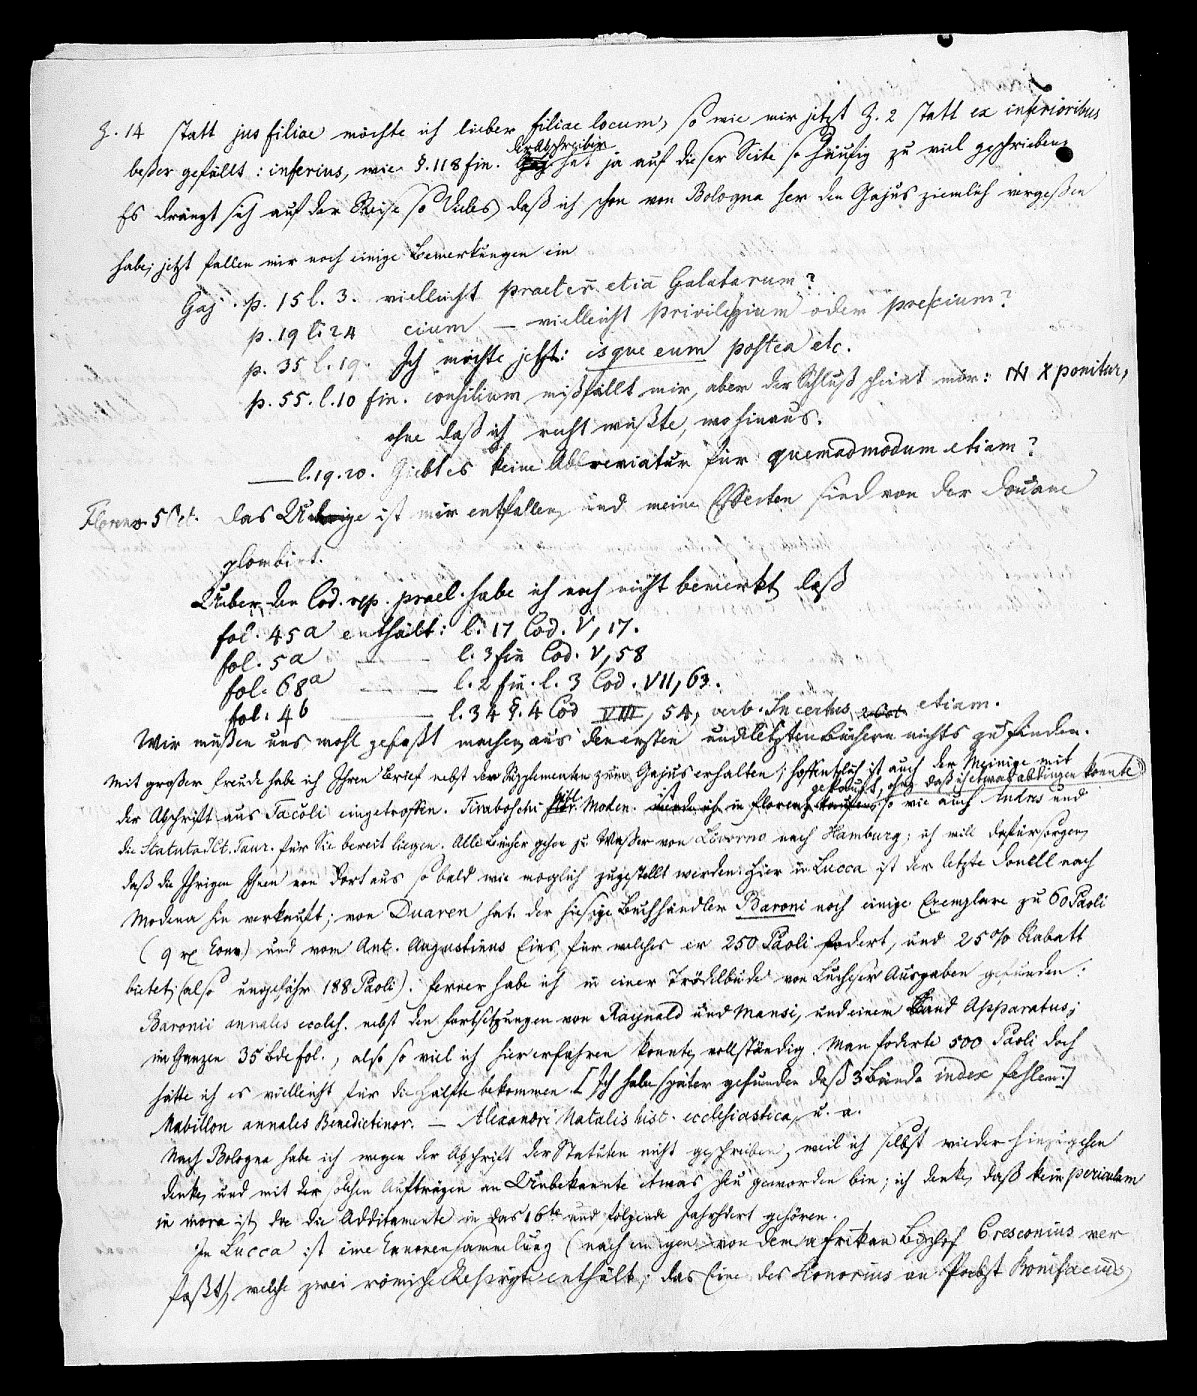 Z. 14 statt jus filiae möchte ich lieber filiae locum, so wie mir jetzt Z. 2 statt ex inferioribus
beßer gefällt: inferius, wie §. 118 fin. der Abschreiber hat ja auf dieser Seite so häufig zu viel geschrieben.
Es drängt sich auf der Reise so Vieles, daß ich schon von Bologna her den Gajus ziemlich vergeßen
habe; jetzt fallen mir noch einige Bemerkungen ein
Gaj. p. 15 l. 3. vielleicht praeter etia Galatarum?
p. 19 l. 24 cium — vielleicht privilegium oder precium?
p. 35 l. 19. Ich möchte jetzt: isque eum postea etc.
p. 55. l. 10 fin. consilium mißfällt mir, aber der Schluß scheint mir: X ponitur,
ohne daß ich recht wüßte, wohinaus.
— l. 19. 20. Giebt es keine Abbreviatur für quemadmodum etiam?
Florenz. 5 Oct. Das Uebrige ist mir entfallen, und meine Effecten sind von der Douane
plombirt.
Ueber den Cod. rep. prael. habe ich noch nicht bemerkt, daß
fol. 45a enthält: l. 17 Cod. V, 17.
fol. 5a — — l. 3 fin Cod. V, 58
fol. 68a — — l. 2 fin. l. 3 Cod. VII, 63.
fol. 4b — l. 34 §. 4 Cod VIII, 54, verb. Incertus etiam.
Wir müßen uns wohl gefaßt machen, aus den ersten und letzten Büchern nichts zu finden.
Mit großer Freude habe ich Ihren Brief nebst den Supplementen zum Gajus erhalten; hoffentlich ist auch der Meinige mit
der Abschrift aus Tacoli eingetroffen. Tiraboschi Moden. ist in Florenz gekauft, ohne daß ich etwas abdingen konnte, so wie auch Andres und
die Statuta JCt. Taur. für Sie bereit liegen. Alle Bücher gehen zu Waßer von Livorno nach Hamburg; ich will dafür sorgen,
daß die Ihrigen Ihnen von dort aus so bald wie möglich zugestellt werden. Hier in Lucca ist der letzte Donell nach
Modena hin verkauft; von Duaren hat der hiesige Buchhändler Baroni noch einige Exemplare zu 60 Paoli
(9 Conv.) und vom Ant. Augustinus Eins, für welches er 250 Paoli fodert, und 25% Rabatt
bietet, (also ungefähr 188 Paoli). Ferner habe ich in einer Trödelbude von Luccheser Ausgaben gefunden:
Baronii annales eccles. nebst den Fortsetzungen von Raynald und Mansi, und einem Band Apparatus;
im Ganzen 35 Bde fol., also so viel ich hier erfahren konnte, vollständig. Man foderte 500 Paoli doch
hätte ich es vielleicht für die Hälfte bekommen. [Ich habe später gefunden daß 3 Bände index fehlen.]
Mabillon annales Benedictinor. — Alexandri Natalis hist. ecclesiastica, u. a.
Nach Bologna habe ich wegen der Abschrift der Statuten nicht geschrieben, weil ich selbst wieder hinzugehen
denke, und mit dergleichen Aufträgen an Unbekannte etwas scheu geworden bin; ich denke, daß kein periculum
in mora ist, da die Additamente in das 16te und folgende Jahrhdert gehören.
In Lucca ist eine Canonensammlung (nach einigen von dem afrikan Bischof Cresconius ver
faßt), welche zwei römische Rescripte enthält; das Eine des Honorius an Pabst Bonifacius,